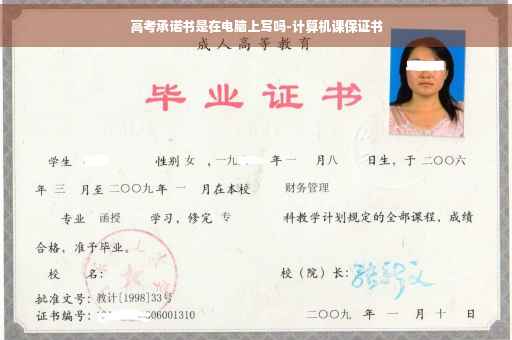 高考承诺书是在电脑上写吗-计算机课保证书
成人高等教育
毕业证书
学生 性别 女 ，一九 年 一 月 八 日生，于 二〇〇六
年 三 月至 二〇〇九 年 一 月在本校 财务管理
专业 函授 学习，修完 专 科教学计划规定的全部课程，成绩
合格，准予毕业。
校 名： 校（院）长：
批准文号：教计[1998]33号
证书编号： 06001310 二〇〇九 年 一 月 十 日